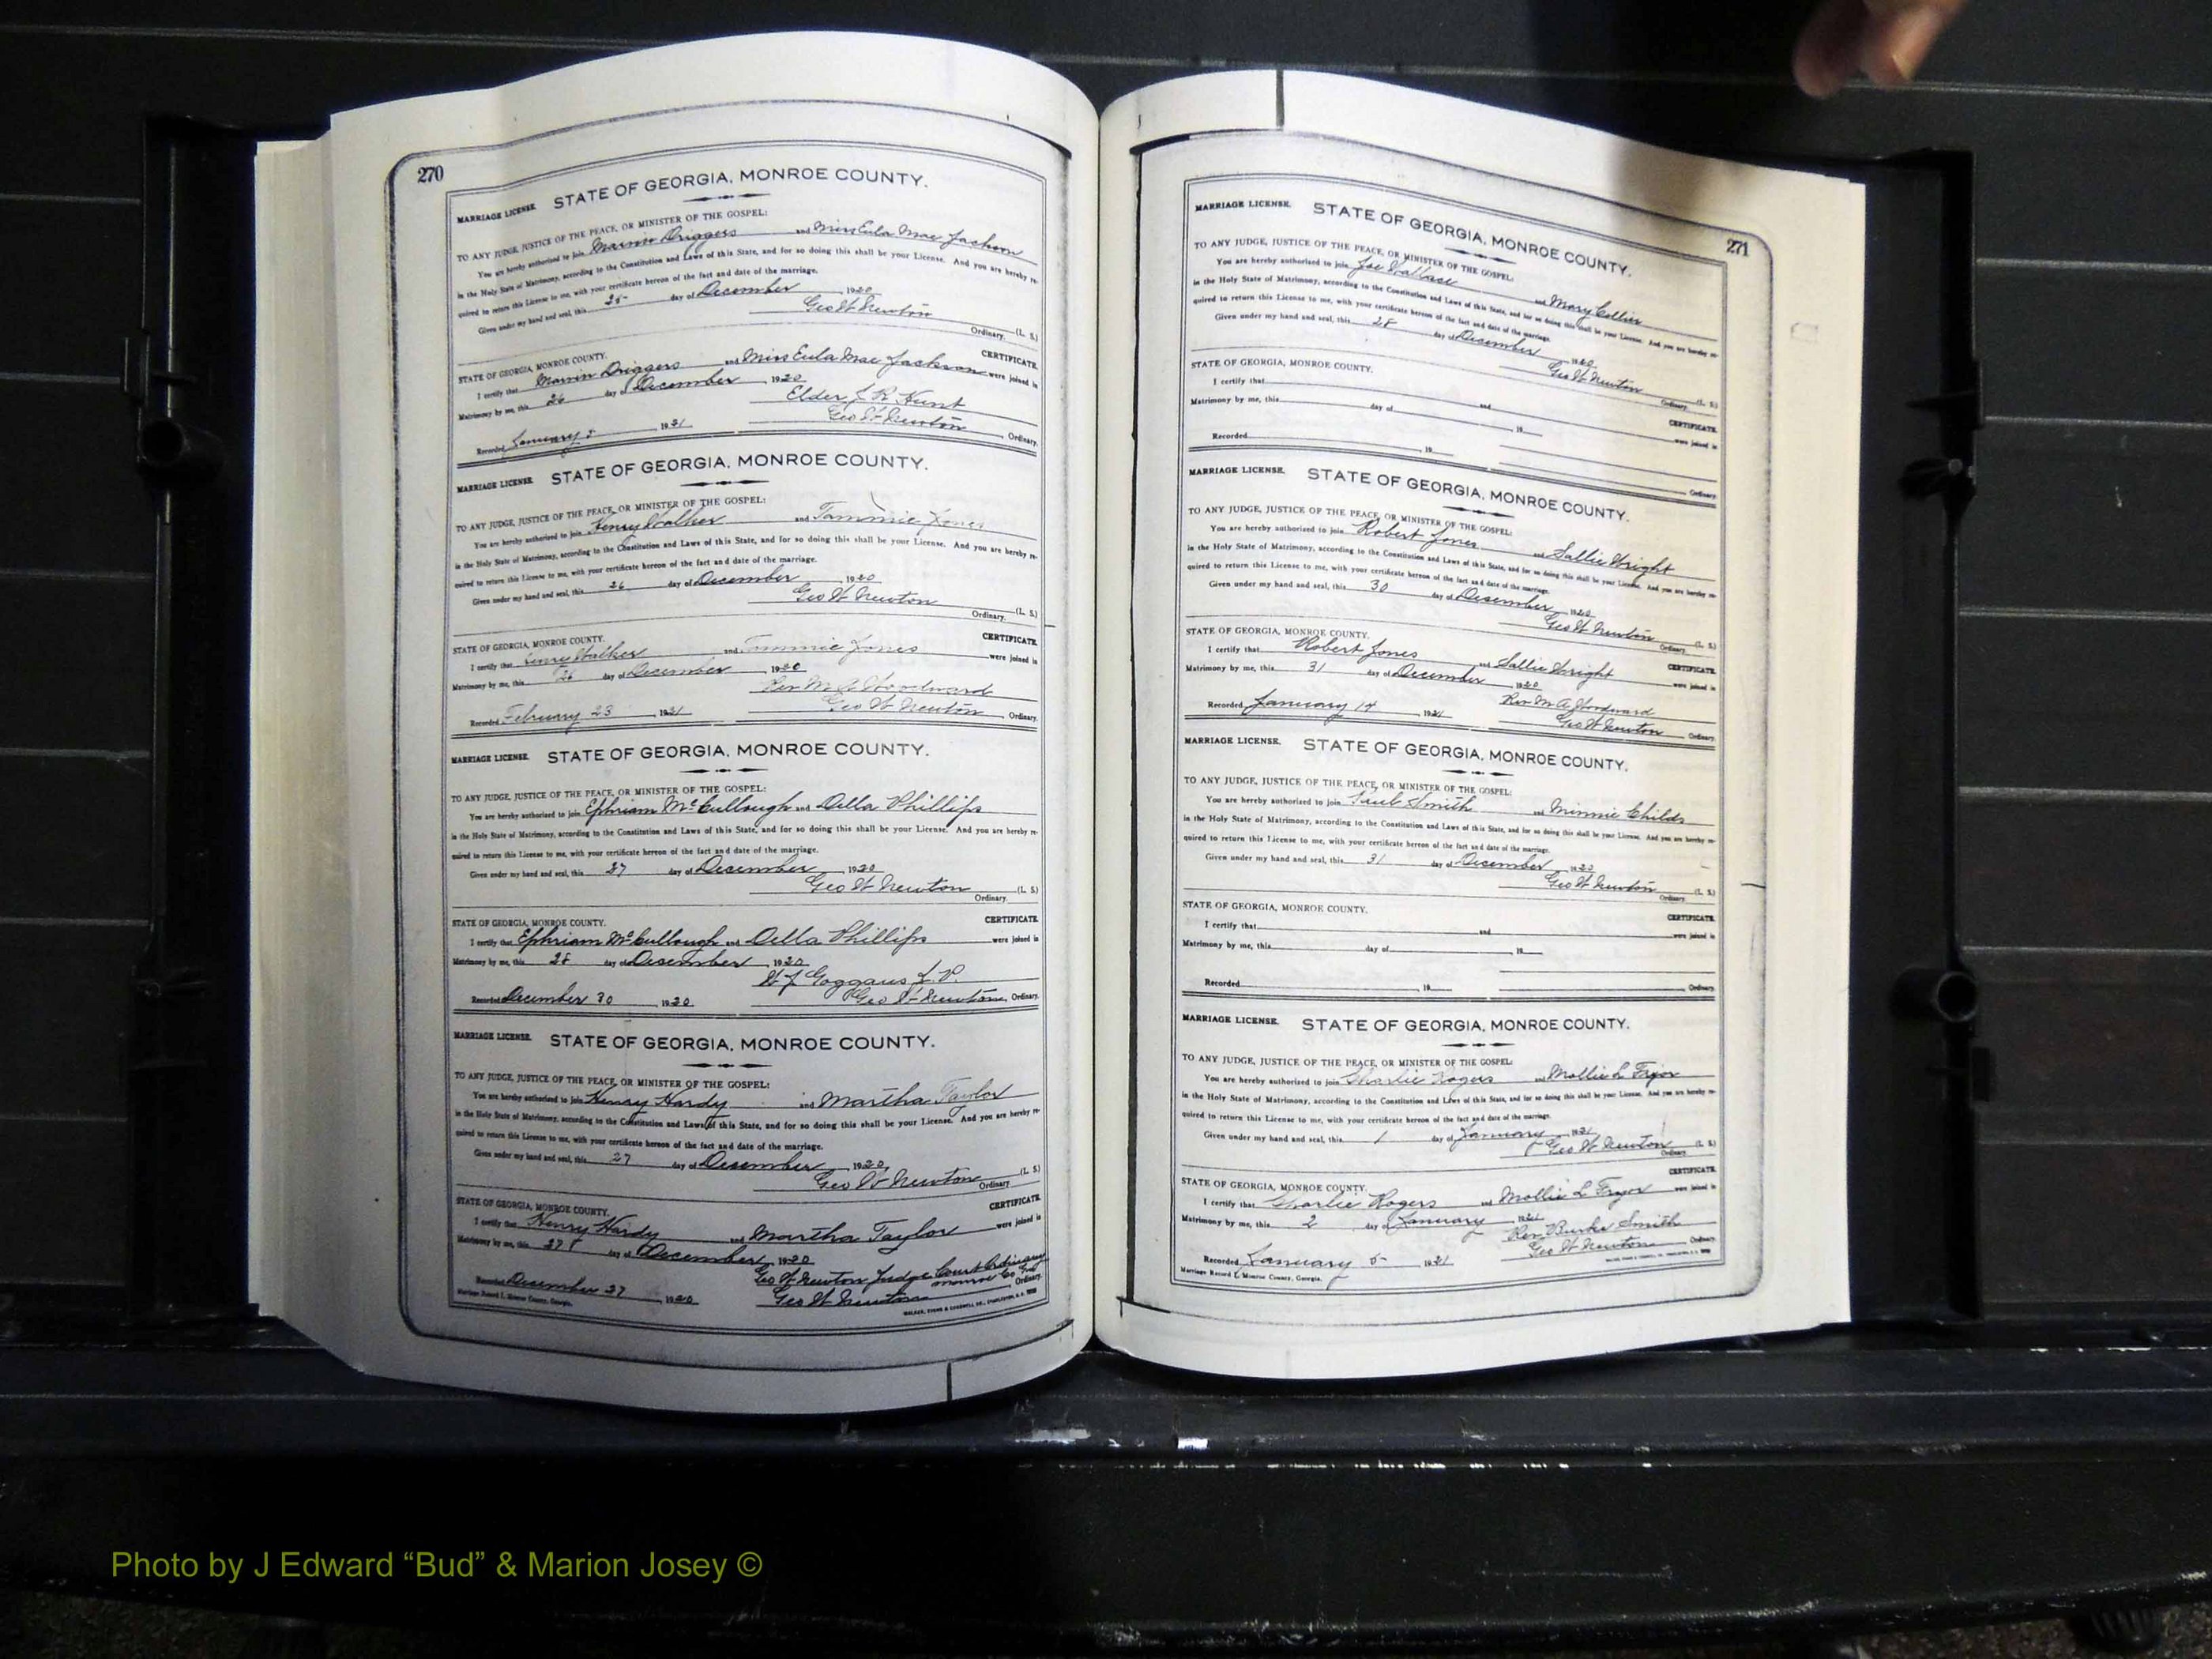 270
MARRIAGE LICENSE. STATE OF GEORGIA, MONROE COUNTY.
TO ANY JUDGE, JUSTICE OF THE PEACE, OR MINISTER OF THE GOSPEL:
You are hereby authorized to join Marvin Driggers and Miss Eula Mae Jackson
in the Holy State of Matrimony, according to the Constitution and Laws of this State, and for so doing this shall be your License. And you are hereby re-
quired to return this License to me, with your certificate hereon of the fact and date of the marriage.
Given under my hand and seal, this 25 day of December, 1920
Geo W Newton (L. S.)
Ordinary.
STATE OF GEORGIA, MONROE COUNTY. CERTIFICATE.
I certify that Marvin Driggers and Miss Eula Mae Jackson were joined in
Matrimony by me, this 26 day of December, 1920
Elder J. R. Hunt
Recorded January 5 1921 Geo W Newton, Ordinary.
MARRIAGE LICENSE. STATE OF GEORGIA, MONROE COUNTY.
TO ANY JUDGE, JUSTICE OF THE PEACE, OR MINISTER OF THE GOSPEL:
You are hereby authorized to join Henry Walker and Tammie Jones
in the Holy State of Matrimony, according to the Constitution and Laws of this State, and for so doing this shall be your License. And you are hereby re-
quired to return this License to me, with your certificate hereon of the fact and date of the marriage.
Given under my hand and seal, this 26 day of December, 1920
Geo W Newton (L. S.)
Ordinary.
STATE OF GEORGIA, MONROE COUNTY. CERTIFICATE.
I certify that Henry Walker and Tommie Jones were joined in
Matrimony by me, this 26 day of December, 1920
Rev M. A. Woodward
Recorded February 23, 1921 Geo W Newton, Ordinary.
MARRIAGE LICENSE. STATE OF GEORGIA, MONROE COUNTY.
TO ANY JUDGE, JUSTICE OF THE PEACE, OR MINISTER OF THE GOSPEL:
You are hereby authorized to join Ephriam McCullough and Della Phillips
in the Holy State of Matrimony, according to the Constitution and Laws of this State, and for so doing this shall be your License. And you are hereby re-
quired to return this License to me, with your certificate hereon of the fact and date of the marriage.
Given under my hand and seal, this 27 day of December, 1920
Geo W Newton (L. S.)
Ordinary.
STATE OF GEORGIA, MONROE COUNTY. CERTIFICATE.
I certify that Ephriam McCullough and Della Phillips were joined in
Matrimony by me, this 28 day of December, 1920
W J Goggans J. P.
Recorded December 30, 1920 Geo W Newton, Ordinary.
MARRIAGE LICENSE. STATE OF GEORGIA, MONROE COUNTY.
TO ANY JUDGE, JUSTICE OF THE PEACE, OR MINISTER OF THE GOSPEL:
You are hereby authorized to join Henry Hardy and Martha Taylor
in the Holy State of Matrimony, according to the Constitution and Laws of this State, and for so doing this shall be your License. And you are hereby re-
quired to return this License to me, with your certificate hereon of the fact and date of the marriage.
Given under my hand and seal, this 27 day of December, 1920
Geo W Newton (L. S.)
Ordinary.
STATE OF GEORGIA, MONROE COUNTY. CERTIFICATE.
I certify that Henry Hardy and Martha Taylor were joined in
Matrimony by me, this 27 day of December, 1920
Geo W Newton Judge Court Ordinary
Monroe Co Ga
Recorded December 27, 1920 Geo W Newton Ordinary.
Marriage Record I, Monroe County, Georgia.
271
MARRIAGE LICENSE. STATE OF GEORGIA, MONROE COUNTY.
TO ANY JUDGE, JUSTICE OF THE PEACE, OR MINISTER OF THE GOSPEL:
You are hereby authorized to join Joe Wallace and Mary Collier
in the Holy State of Matrimony, according to the Constitution and Laws of this State, and for so doing this shall be your License. And you are hereby re-
quired to return this License to me, with your certificate hereon of the fact and date of the marriage.
Given under my hand and seal, this 28 day of December, 1920
Geo W Newton (L. S.)
Ordinary.
STATE OF GEORGIA, MONROE COUNTY. CERTIFICATE.
I certify that and were joined in
Matrimony by me, this day of 19
Recorded 19 Ordinary.
MARRIAGE LICENSE. STATE OF GEORGIA, MONROE COUNTY.
TO ANY JUDGE, JUSTICE OF THE PEACE, OR MINISTER OF THE GOSPEL:
You are hereby authorized to join Robert Jones and Sallie Wright
in the Holy State of Matrimony, according to the Constitution and Laws of this State, and for so doing this shall be your License. And you are hereby re-
quired to return this License to me, with your certificate hereon of the fact and date of the marriage.
Given under my hand and seal, this 30 day of December, 1920
Geo W Newton (L. S.)
Ordinary.
STATE OF GEORGIA, MONROE COUNTY. CERTIFICATE.
I certify that Robert Jones and Sallie Wright were joined in
Matrimony by me, this 31 day of December, 1920
Rev M A Woodward
Recorded January 14, 1921 Geo W Newton Ordinary.
MARRIAGE LICENSE. STATE OF GEORGIA, MONROE COUNTY.
TO ANY JUDGE, JUSTICE OF THE PEACE, OR MINISTER OF THE GOSPEL:
You are hereby authorized to join Paul Smith and Minnie Childs
in the Holy State of Matrimony, according to the Constitution and Laws of this State, and for so doing this shall be your License. And you are hereby re-
quired to return this License to me, with your certificate hereon of the fact and date of the marriage.
Given under my hand and seal, this 31 day of December, 1920
Geo W Newton (L. S.)
Ordinary.
STATE OF GEORGIA, MONROE COUNTY. CERTIFICATE.
I certify that and were joined in
Matrimony by me, this day of 19
Recorded 19 Ordinary.
MARRIAGE LICENSE. STATE OF GEORGIA, MONROE COUNTY.
TO ANY JUDGE, JUSTICE OF THE PEACE, OR MINISTER OF THE GOSPEL:
You are hereby authorized to join Charlie Rogers and Mollie L Fryor
in the Holy State of Matrimony, according to the Constitution and Laws of this State, and for so doing this shall be your License. And you are hereby re-
quired to return this License to me, with your certificate hereon of the fact and date of the marriage.
Given under my hand and seal, this 1 day of January 1921
Geo W Newton (L. S.)
Ordinary.
STATE OF GEORGIA, MONROE COUNTY. CERTIFICATE.
I certify that Charlie Rogers and Mollie L Fryor were joined in
Matrimony by me, this 2 day of January 1921
Rev Burke Smith
Recorded January 5 1921 Geo W Newton Ordinary.
Marriage Record I, Monroe County, Georgia.
Photo by J Edward “Bud” & Marion Josey ©